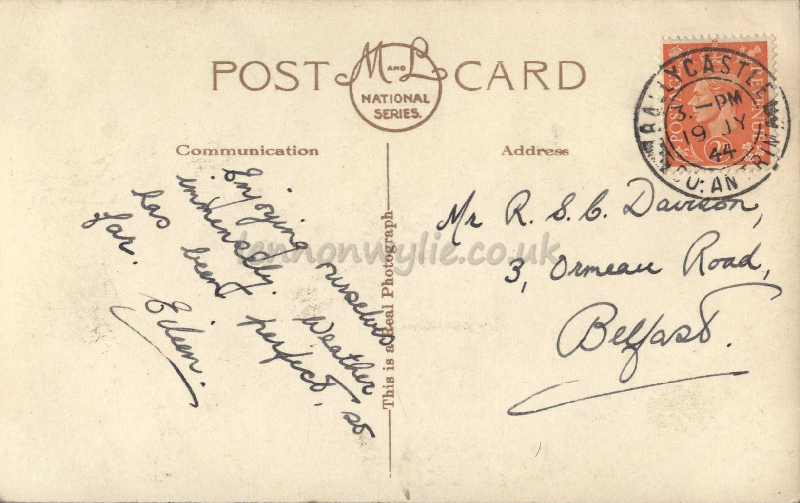 POST CARD
M AND L
NATIONAL
SERIES.
Communication
Address
Enjoying ourselves
immensely. Weather
has been perfect, so
far. Eileen.
This is a Real Photograph
Mr R. S. C. Davison,
3, Ormeau Road,
Belfast.
BALLYCASTLE
3.-PM
19 JY
44
CO. ANTRIM
POSTAGE
REVENUE
2D
lennonwylie.co.uk